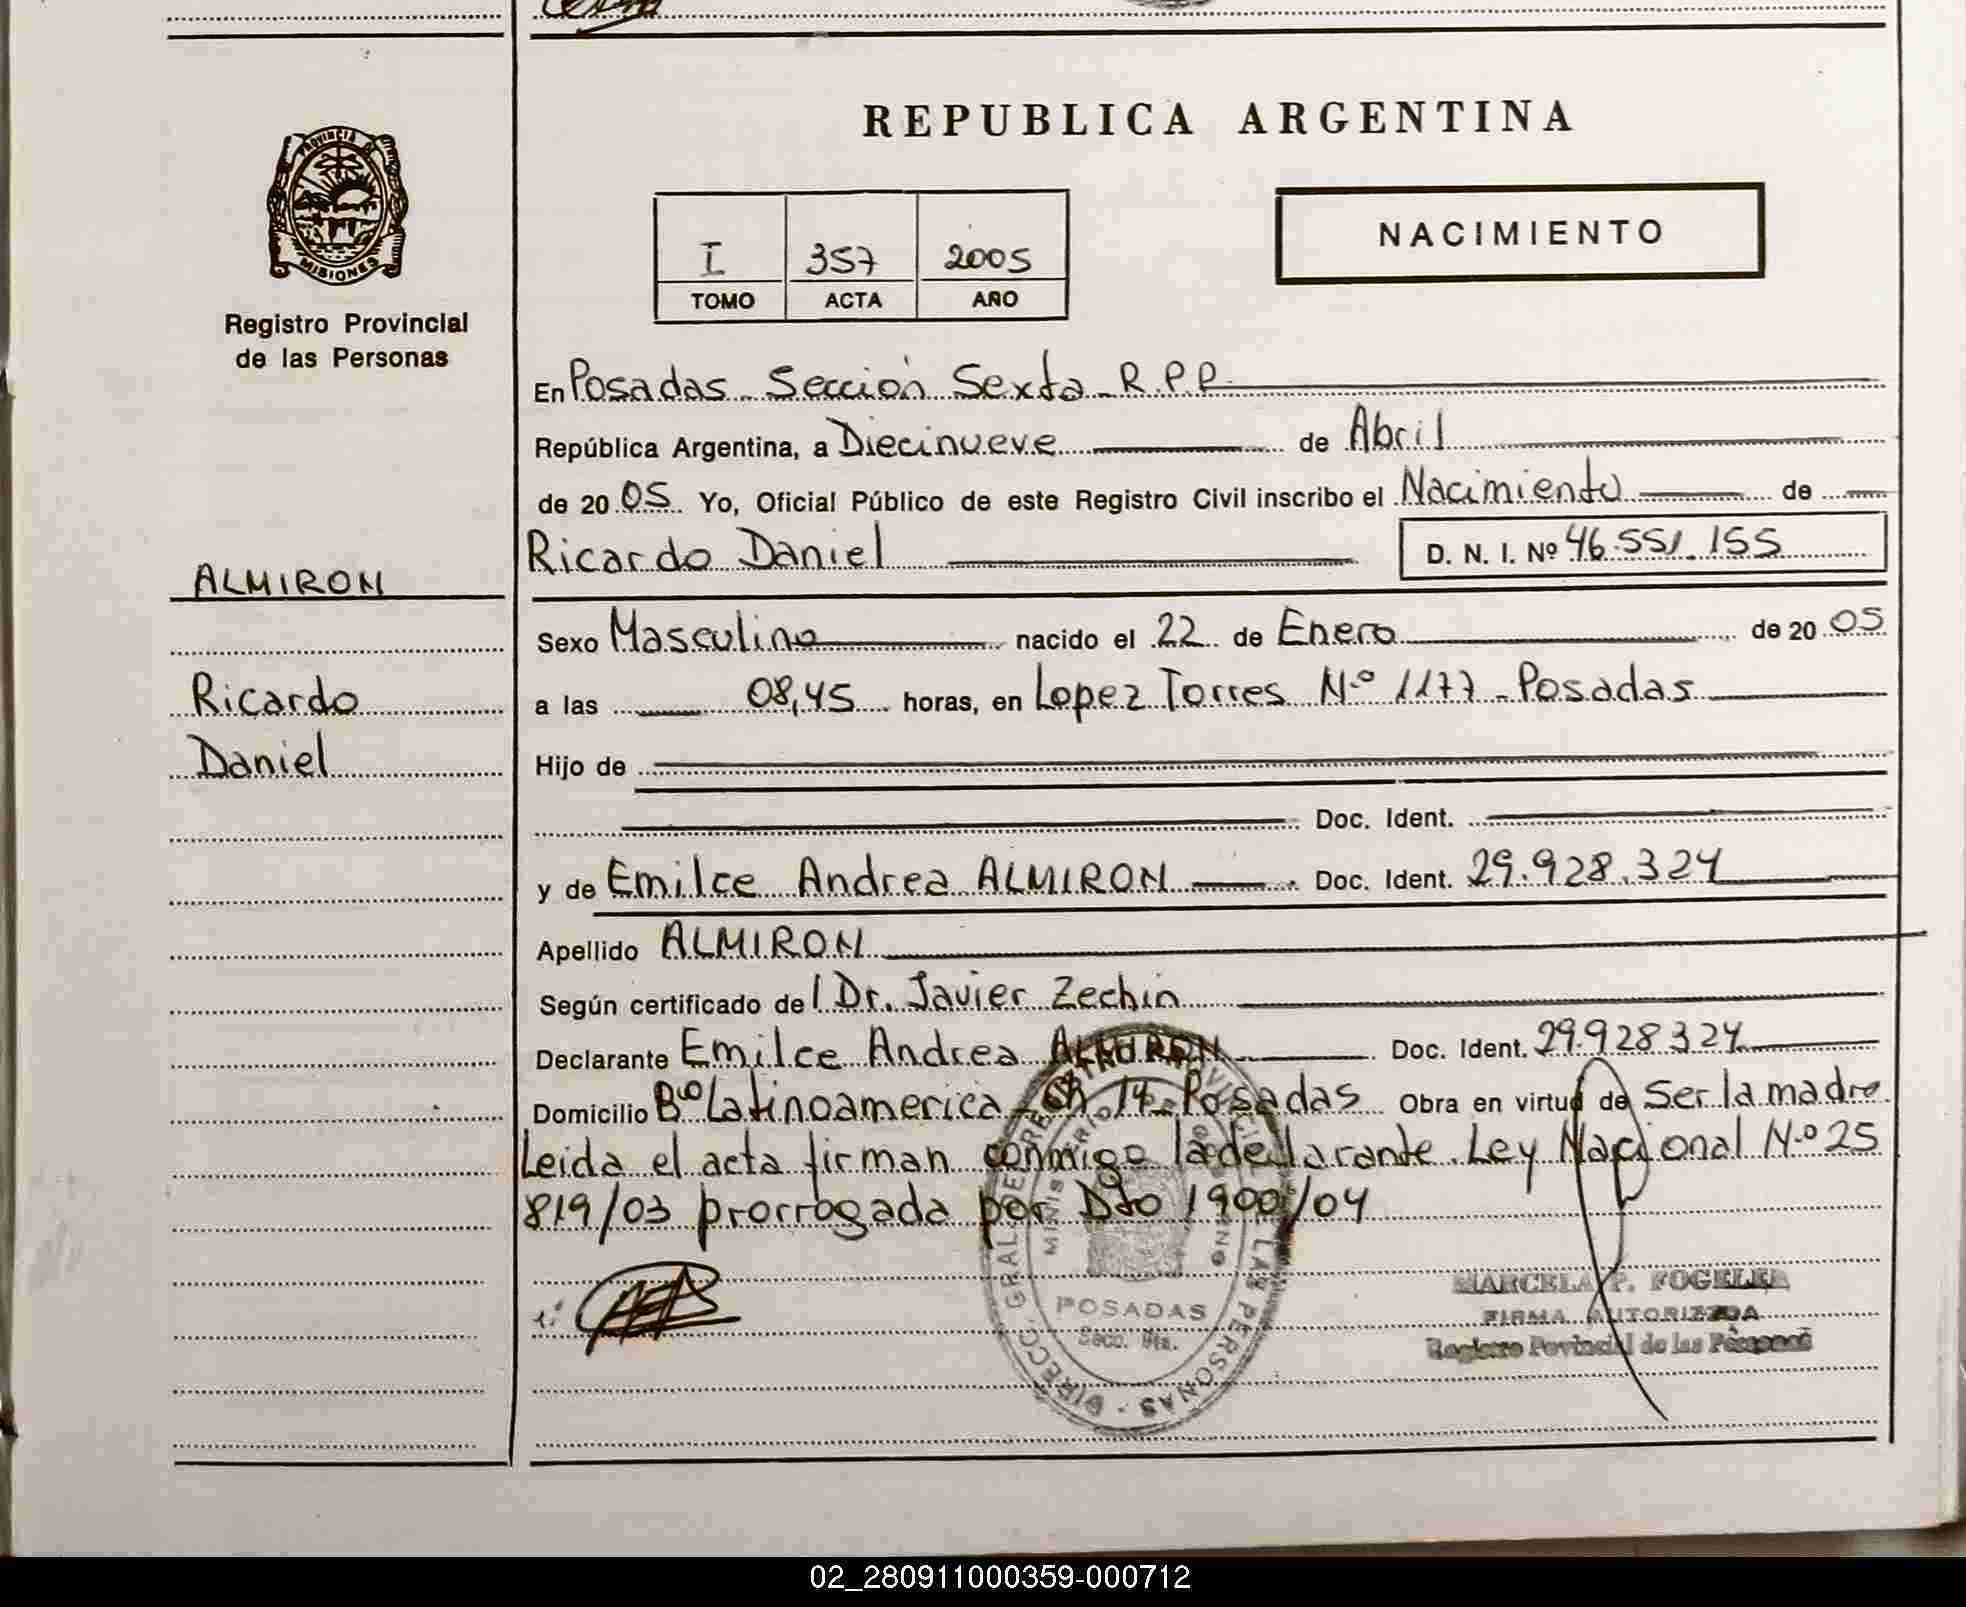 REPUBLICA ARGENTINA
PROVINCIA DE
MISIONES
Registro Provincial
de las Personas
I 357 2005
TOMO ACTA AÑO
NACIMIENTO
En Posadas - Sección Sexta - R.P.P.
República Argentina, a Diecinueve de Abril
de 2005 Yo, Oficial Público de este Registro Civil inscribo el Nacimiento de
Ricardo Daniel D. N. I. Nº 46.551.155
ALMIRON
Ricardo
Daniel
Sexo Masculino nacido el 22 de Enero de 2005
a las 08,45 horas, en Lopez Torres Nº 1177 - Posadas
Hijo de
Doc. Ident.
y de Emilce Andrea ALMIRON Doc. Ident. 29.928.324
Apellido ALMIRON
Según certificado del Dr. Javier Zechin
Declarante Emilce Andrea ALMIRON Doc. Ident. 29.928324
Domicilio Bº Latinoamerica - Ch 14 - Posadas Obra en virtud de Ser la madre
Leida el acta firman conmigo la declarante. Ley Nacional Nº 25
819/03 prorrogada por Dto 1900/04
DIRECC. GRAL. DE REGISTRO PROVINCIAL DE LAS PERSONAS
MINISTERIO DE GOBIERNO
POSADAS
Secc. 6ta.
MARCELA P. FOGELER
FIRMA AUTORIZADA
Registro Provincial de las Personas
02_280911000359-000712